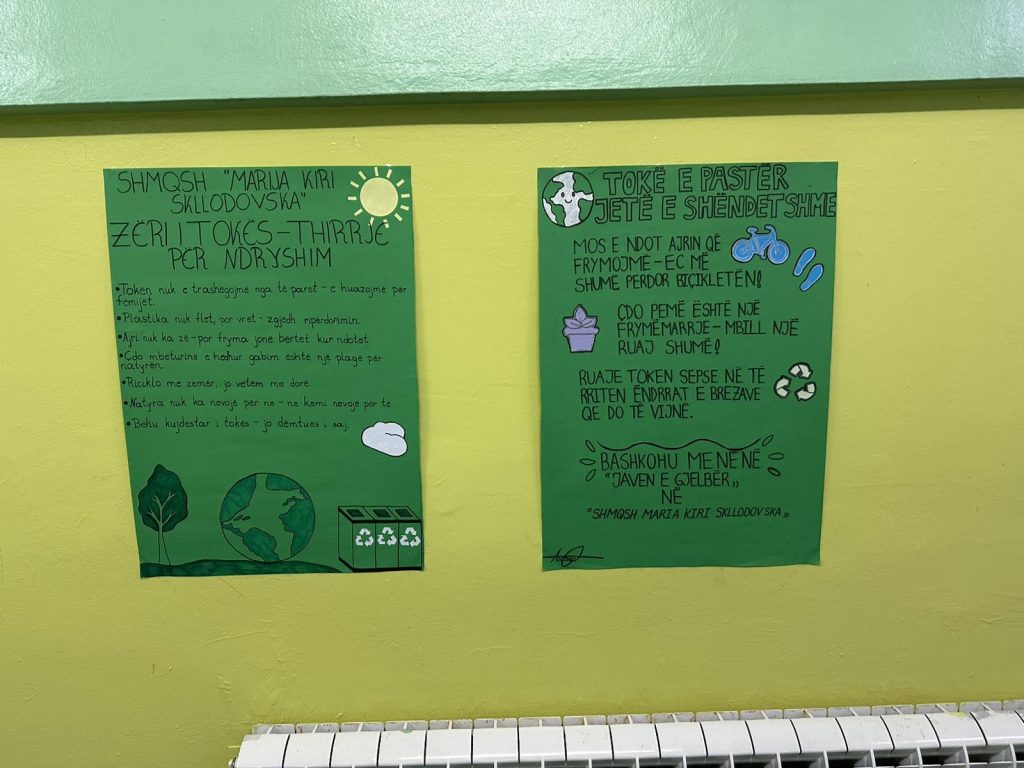 SHMQSH "MARIJA KIRI
SKLLODOVSKA"
ZËRI I TOKËS-THIRRJE
PËR NDRYSHIM
•Token nuk e trashëgojmë nga të parët - e huazojmë për
fëmijët.
•Plastika nuk flet, por vret - zgjedh ripërdorimin.
•Ajri nuk ka zë-por fryma jonë bërtet kur ndotet.
•Çdo mbeturinë e hedhur gabim është një plagë për
natyrën.
•Riciklo me zemër, jo vetëm me dorë.
•Natyra nuk ka nevojë për ne - ne kemi nevojë për të.
•Bëhu kujdestar i tokës - jo dëmtues i saj.
TOKË E PASTËR
JETË E SHËNDETSHME
MOS E NDOT AJRIN QË
FRYMOJMË-EC MË
SHUMË PERDOR BIÇIKLETËN!
ÇDO PEMË ËSHTË NJË
FRYMËMARRJE-MBILL NJË
RUAJ SHUMË!
RUAJE TOKEN SEPSE NË TË
RRITEN ËNDRRAT E BREZAVE
QE DO TË VIJNË.
BASHKOHU ME NE NË
"JAVEN E GJELBËR„
NË
"SHMQSH MARIA KIRI SKLLODOVSKA„